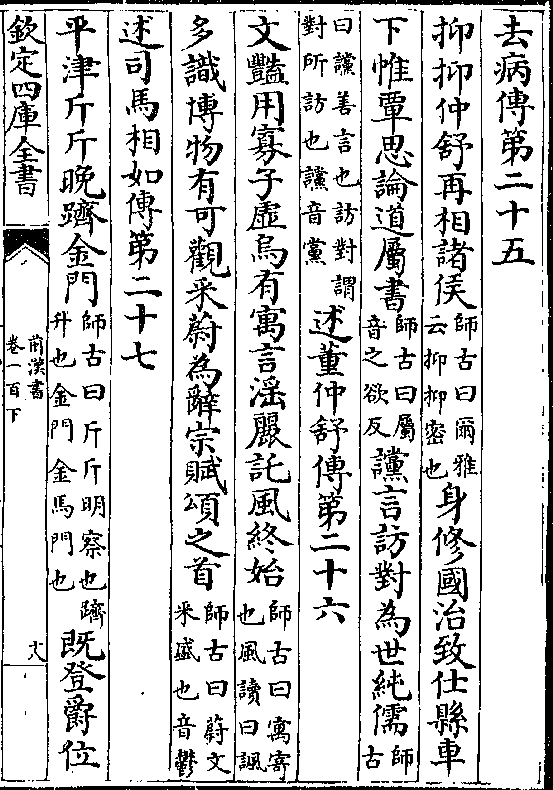 去病傳第二十五
抑抑仲舒再相諸侯師古曰爾雅云抑抑密也身修國治致仕縣車
下帷覃思論道屬書師古曰屬音之欲反讜言訪對為世純儒師古
曰讜善言也訪對謂對所訪也讜音黨述董仲舒傳第二十六
文豔用寡子虛烏有寓言淫麗託風終始師古曰寓寄也風讀曰諷
多識博物有可觀采蔚為辭宗賦頌之首師古曰蔚文采盛也音鬱
述司馬相如傳第二十七
平津斤斤晚躋金門師古曰斤斤明察也躋升也金門金馬門也既登爵位
欽定四庫全書
前漢書
卷一百下
十八